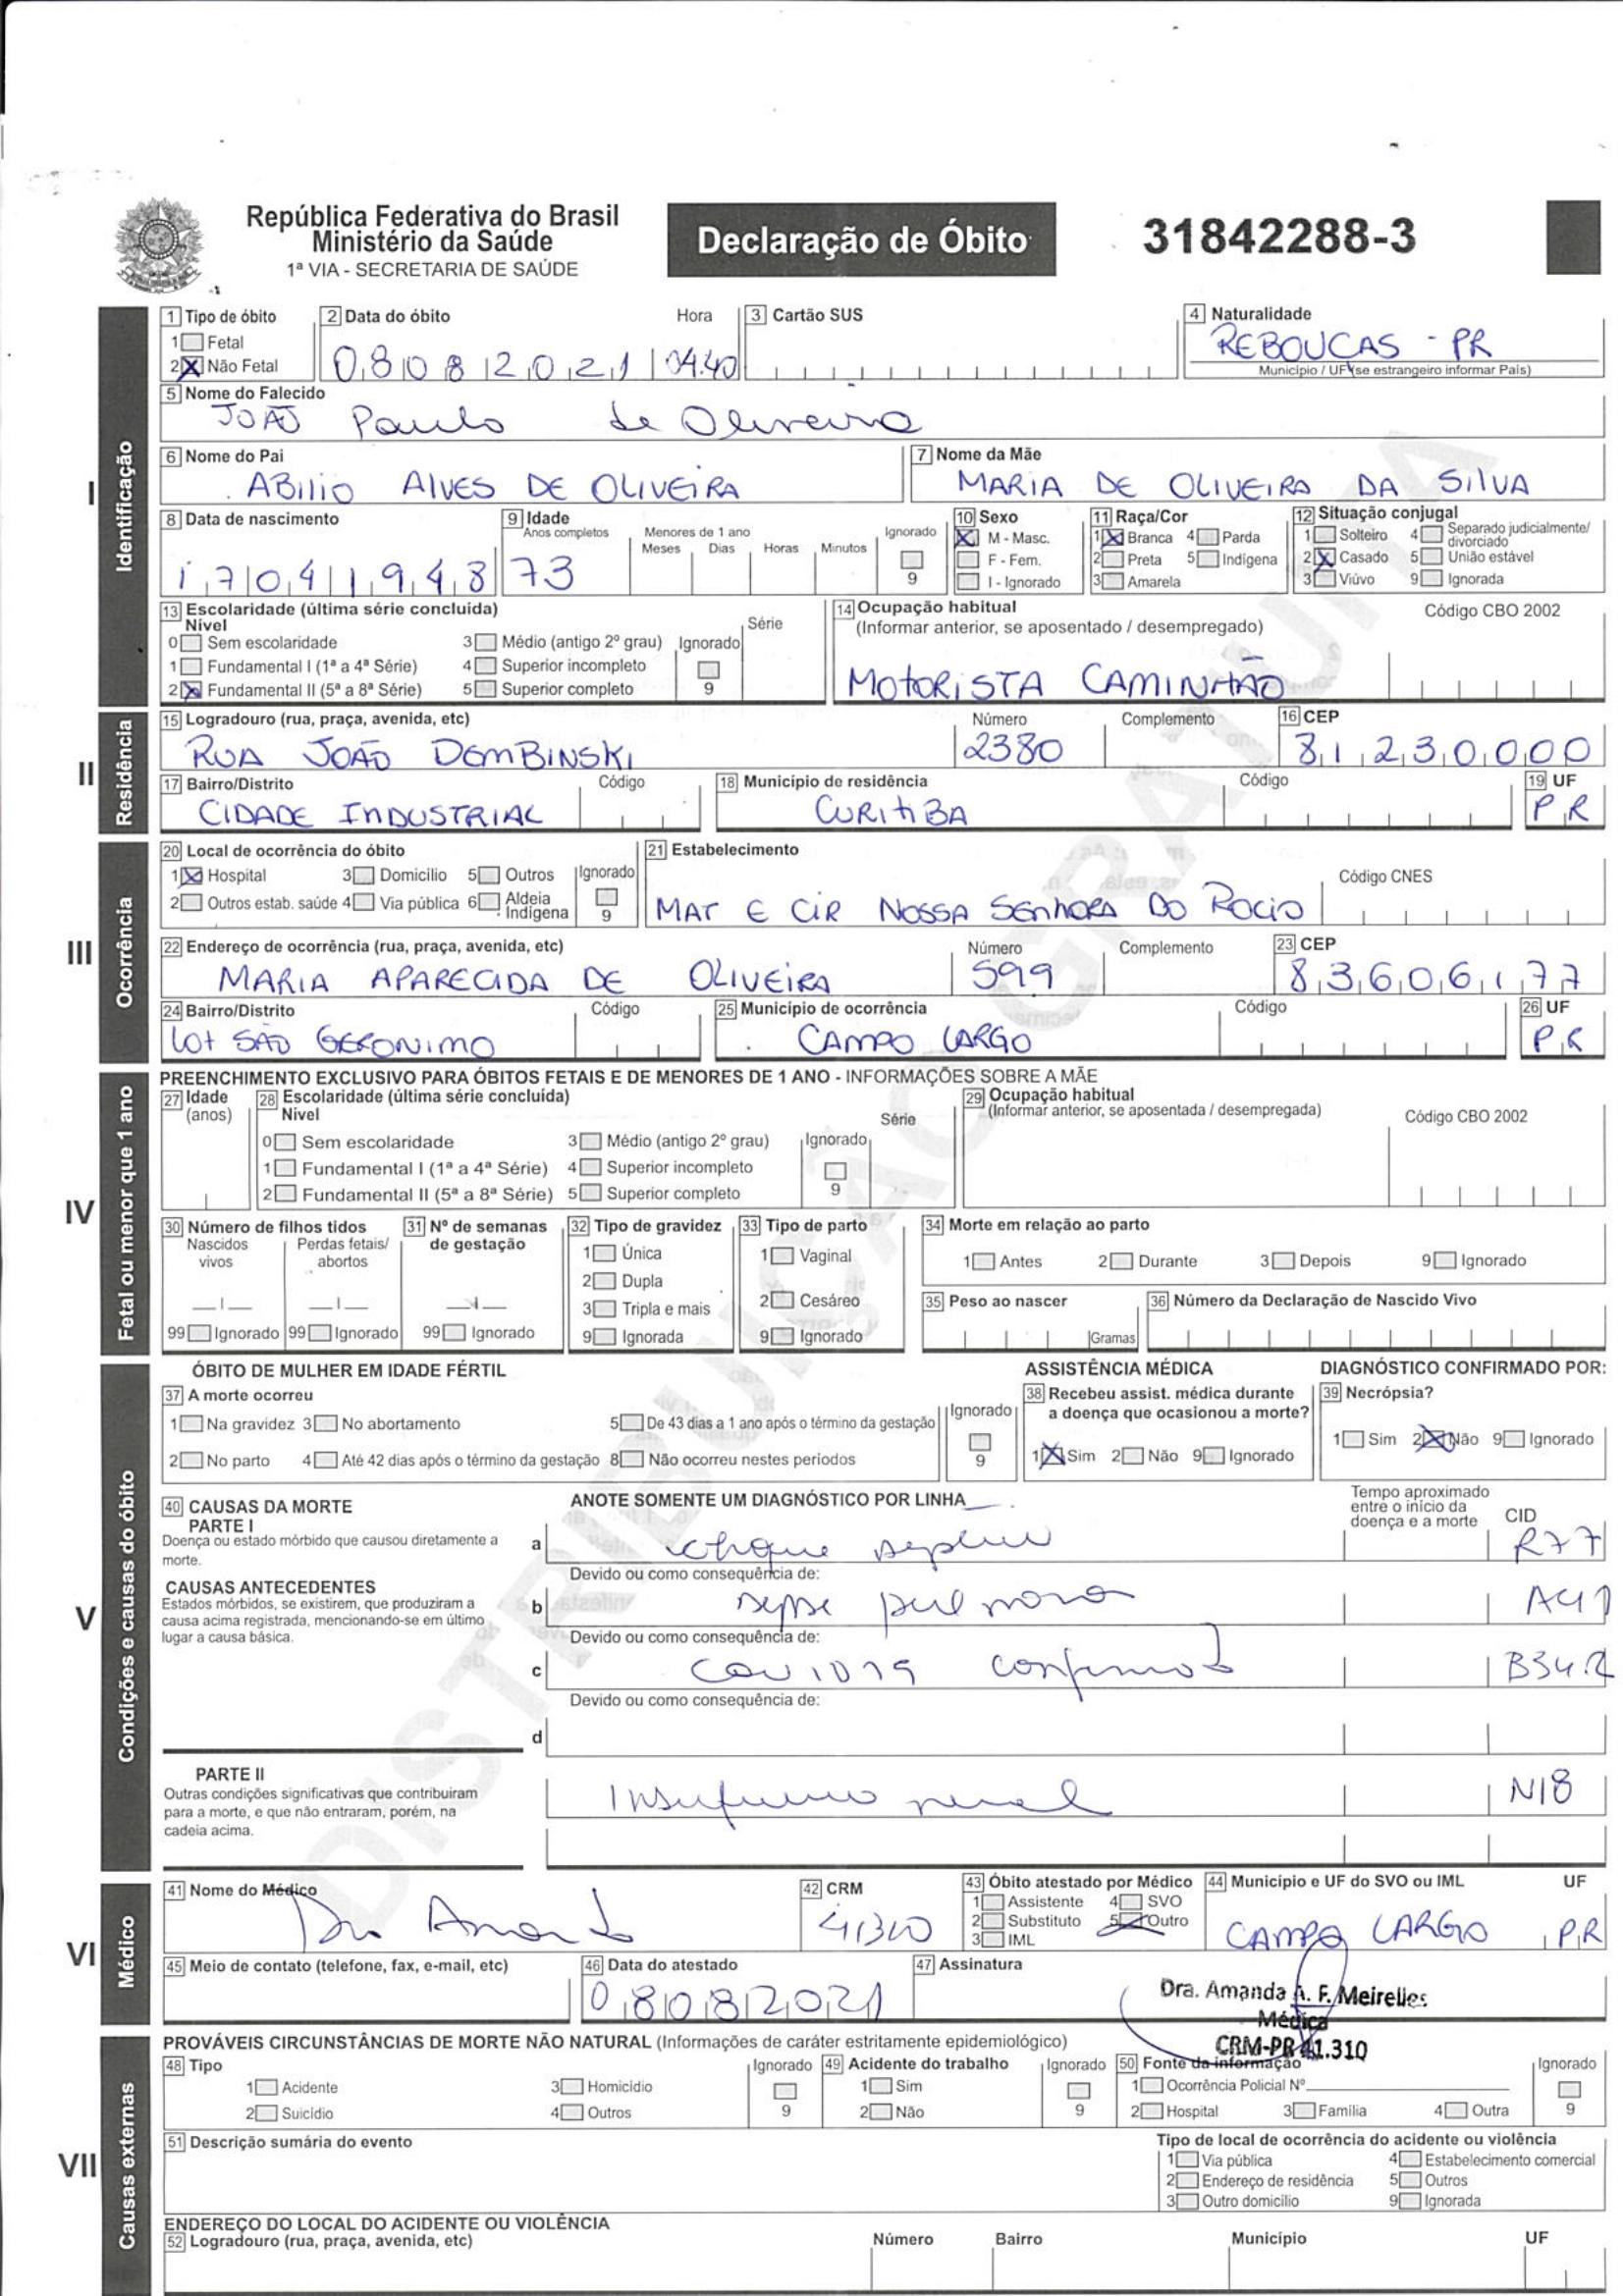 República Federativa do Brasil
Ministério da Saúde
1ª VIA - SECRETARIA DE SAÚDE
Declaração de Óbito
31842288-3
I Identificação
1 Tipo de óbito
1 Fetal
2 X Não Fetal
2 Data do óbito Hora
08082021 04:40
3 Cartão SUS
4 Naturalidade
REBOUCAS - PR
Município / UF (se estrangeiro informar País)
5 Nome do Falecido
JOÃO Paulo de Oliveira
6 Nome do Pai
ABILIO ALVES DE OLIVEIRA
7 Nome da Mãe
MARIA DE OLIVEIRA DA SILVA
8 Data de nascimento
17041948
9 Idade
Anos completos Menores de 1 ano Ignorado
Meses Dias Horas Minutos
73 9
10 Sexo
X M - Masc.
F - Fem.
I - Ignorado
11 Raça/Cor
1 X Branca 4 Parda
2 Preta 5 Indígena
3 Amarela
12 Situação conjugal
1 Solteiro 4 Separado judicialmente/divorciado
2 X Casado 5 União estável
3 Viúvo 9 Ignorada
13 Escolaridade (última série concluída)
Nível Série
0 Sem escolaridade 3 Médio (antigo 2º grau) Ignorado
1 Fundamental I (1ª a 4ª Série) 4 Superior incompleto
2 X Fundamental II (5ª a 8ª Série) 5 Superior completo 9
14 Ocupação habitual Código CBO 2002
(Informar anterior, se aposentado / desempregado)
MOTORISTA CAMINHÃO
II Residência
15 Logradouro (rua, praça, avenida, etc) Número Complemento 16 CEP
RUA JOÃO DEMBINSKI 2380 81230000
17 Bairro/Distrito Código 18 Município de residência Código 19 UF
CIDADE INDUSTRIAL CURITIBA PR
III Ocorrência
20 Local de ocorrência do óbito
1 X Hospital 3 Domicílio 5 Outros Ignorado
2 Outros estab. saúde 4 Via pública 6 Aldeia Indígena 9
21 Estabelecimento Código CNES
MAT E CIR NOSSA SENHORA DO ROCIO
22 Endereço de ocorrência (rua, praça, avenida, etc) Número Complemento 23 CEP
MARIA APARECIDA DE OLIVEIRA 599 83606177
24 Bairro/Distrito Código 25 Município de ocorrência Código 26 UF
LOT SÃO GERONIMO CAMPO LARGO PR
IV Fetal ou menor que 1 ano
PREENCHIMENTO EXCLUSIVO PARA ÓBITOS FETAIS E DE MENORES DE 1 ANO - INFORMAÇÕES SOBRE A MÃE
27 Idade
(anos)
28 Escolaridade (última série concluída)
Nível Série
0 Sem escolaridade 3 Médio (antigo 2º grau) Ignorado
1 Fundamental I (1ª a 4ª Série) 4 Superior incompleto
2 Fundamental II (5ª a 8ª Série) 5 Superior completo 9
29 Ocupação habitual
(Informar anterior, se aposentada / desempregada) Código CBO 2002
30 Número de filhos tidos
Nascidos vivos Perdas fetais/abortos
99 Ignorado 99 Ignorado
31 Nº de semanas de gestação
99 Ignorado
32 Tipo de gravidez
1 Única
2 Dupla
3 Tripla e mais
9 Ignorada
33 Tipo de parto
1 Vaginal
2 Cesáreo
9 Ignorado
34 Morte em relação ao parto
1 Antes 2 Durante 3 Depois 9 Ignorado
35 Peso ao nascer
Gramas
36 Número da Declaração de Nascido Vivo
V Condições e causas do óbito
ÓBITO DE MULHER EM IDADE FÉRTIL
37 A morte ocorreu
1 Na gravidez 3 No abortamento 5 De 43 dias a 1 ano após o término da gestação Ignorado
2 No parto 4 Até 42 dias após o término da gestação 8 Não ocorreu nestes períodos 9
ASSISTÊNCIA MÉDICA
38 Recebeu assist. médica durante
a doença que ocasionou a morte?
1 X Sim 2 Não 9 Ignorado
DIAGNÓSTICO CONFIRMADO POR:
39 Necrópsia?
1 Sim 2 X Não 9 Ignorado
40 CAUSAS DA MORTE ANOTE SOMENTE UM DIAGNÓSTICO POR LINHA
PARTE I
Doença ou estado mórbido que causou diretamente a morte.
Tempo aproximado entre o início da doença e a morte CID
a choque séptico R77
Devido ou como consequência de:
CAUSAS ANTECEDENTES
Estados mórbidos, se existirem, que produziram a causa acima registrada, mencionando-se em último lugar a causa básica.
b sepse pulmonar A41
Devido ou como consequência de:
c covid 19 confirmado B34.2
Devido ou como consequência de:
d
PARTE II
Outras condições significativas que contribuíram para a morte, e que não entraram, porém, na cadeia acima.
Insuficiência renal N18
VI Médico
41 Nome do Médico
Dra Amanda
42 CRM
41310
43 Óbito atestado por Médico
1 Assistente 4 SVO
2 Substituto 5 Outro
3 IML
44 Município e UF do SVO ou IML UF
CAMPO LARGO PR
45 Meio de contato (telefone, fax, e-mail, etc)
46 Data do atestado
08082021
47 Assinatura
Dra. Amanda A. F. Meirelles
Médica
CRM-PR 41.310
VII Causas externas
PROVÁVEIS CIRCUNSTÂNCIAS DE MORTE NÃO NATURAL (Informações de caráter estritamente epidemiológico)
48 Tipo Ignorado
1 Acidente 3 Homicídio
2 Suicídio 4 Outros 9
49 Acidente do trabalho Ignorado
1 Sim
2 Não 9
50 Fonte da informação Ignorado
1 Ocorrência Policial Nº
2 Hospital 3 Família 4 Outra 9
51 Descrição sumária do evento
Tipo de local de ocorrência do acidente ou violência
1 Via pública 4 Estabelecimento comercial
2 Endereço de residência 5 Outros
3 Outro domicílio 9 Ignorada
ENDEREÇO DO LOCAL DO ACIDENTE OU VIOLÊNCIA
52 Logradouro (rua, praça, avenida, etc) Número Bairro Município UF
DISTRIBUIÇÃO GRATUITA